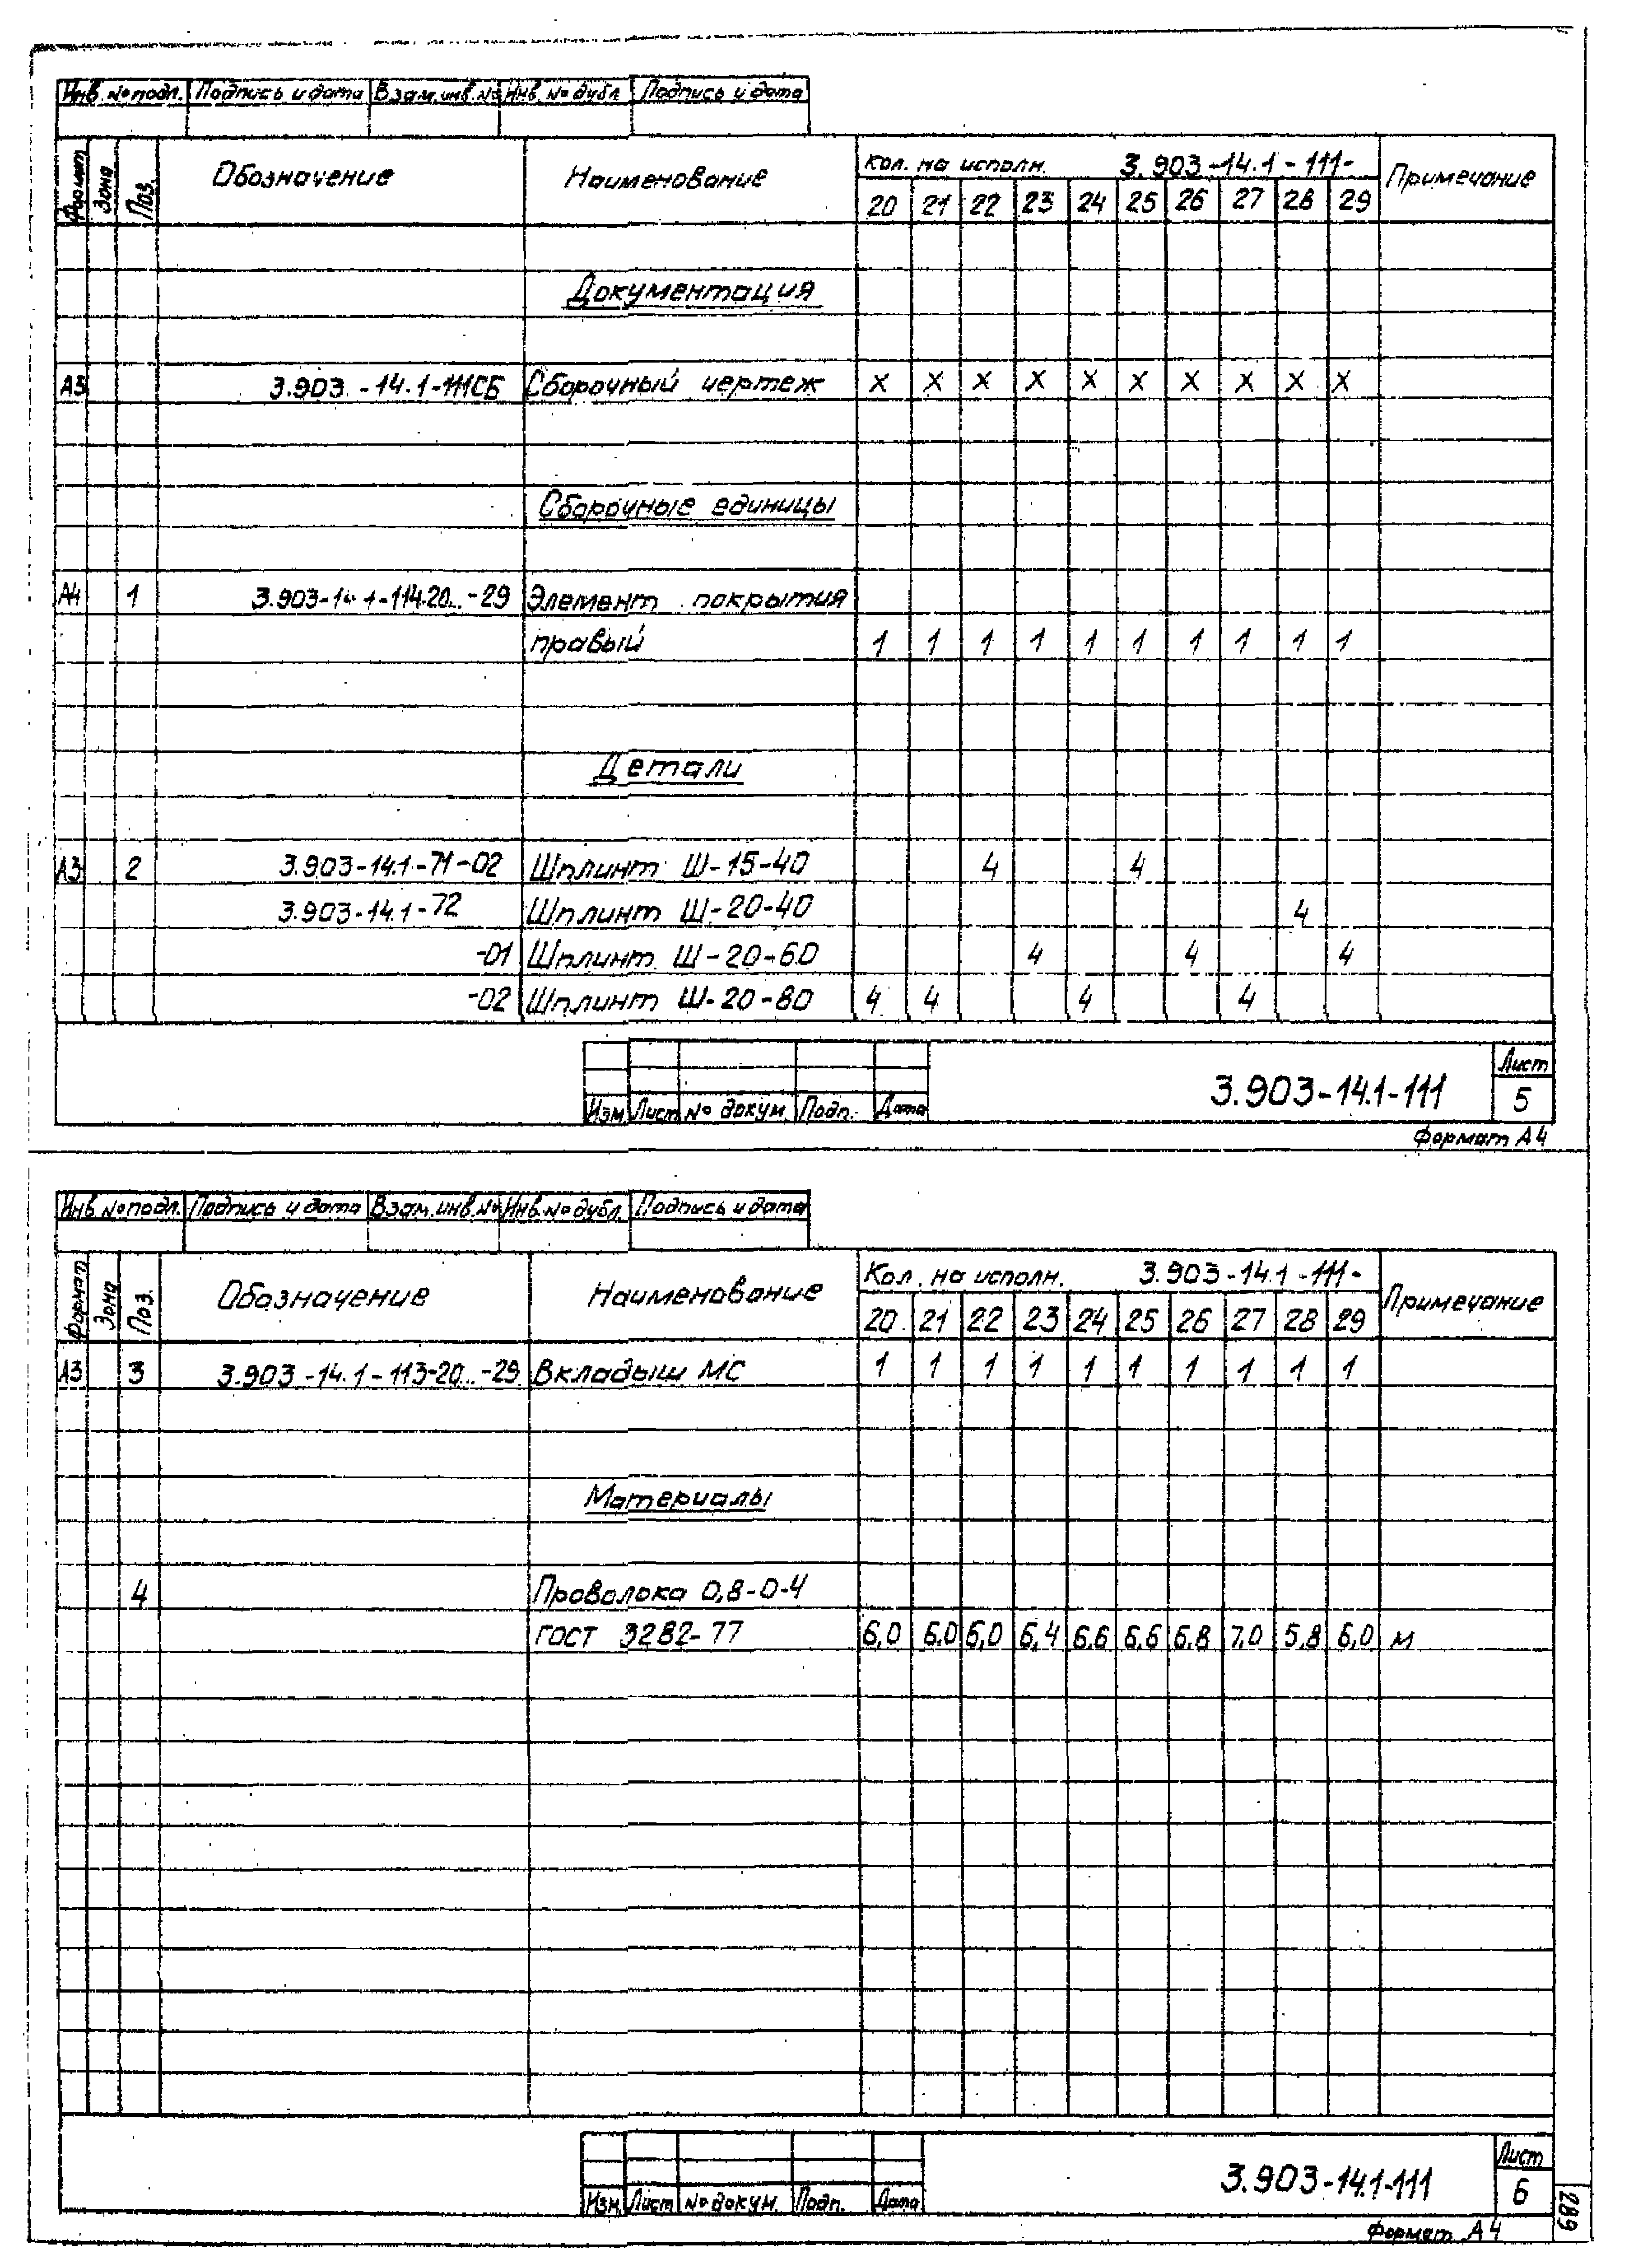 Инв. № подл. Подпись и дата Взам. инв. № Инв. № дубл. Подпись и дата
Формат Зона Поз. Обозначение Наименование Кол. на исполн. 3.903-14.1-111- Примечание
20 21 22 23 24 25 26 27 28 29
Документация
А3 3.903-14.1-111СБ Сборочный чертеж X X X X X X X X X X
Сборочные единицы
А4 1 3.903-14.1-114-20..-29 Элемент покрытия
правый 1 1 1 1 1 1 1 1 1 1
Детали
А3 2 3.903-14.1-71-02 Шплинт Ш-15-40 4 4
3.903-14.1-72 Шплинт Ш-20-40 4
-01 Шплинт Ш-20-60 4 4 4
-02 Шплинт Ш-20-80 4 4 4 4
Изм Лист № докум. Подп. Дата 3.903-14.1-111 Лист 5
Формат А4
Инв. № подл. Подпись и дата Взам. инв. № Инв. № дубл. Подпись и дата
Формат Зона Поз. Обозначение Наименование Кол. на исполн. 3.903-14.1-111- Примечание
20 21 22 23 24 25 26 27 28 29
А3 3 3.903-14.1-113-20..-29 Вкладыш МС 1 1 1 1 1 1 1 1 1 1
Материалы
4 Проволока 0,8-0-4
ГОСТ 3282-77 6,0 6,0 6,0 6,4 6,6 6,6 6,8 7,0 5,8 6,0 м
Изм. Лист № докум. Подп. Дата 3.903-14.1-111 Лист 6
Формат А4
289